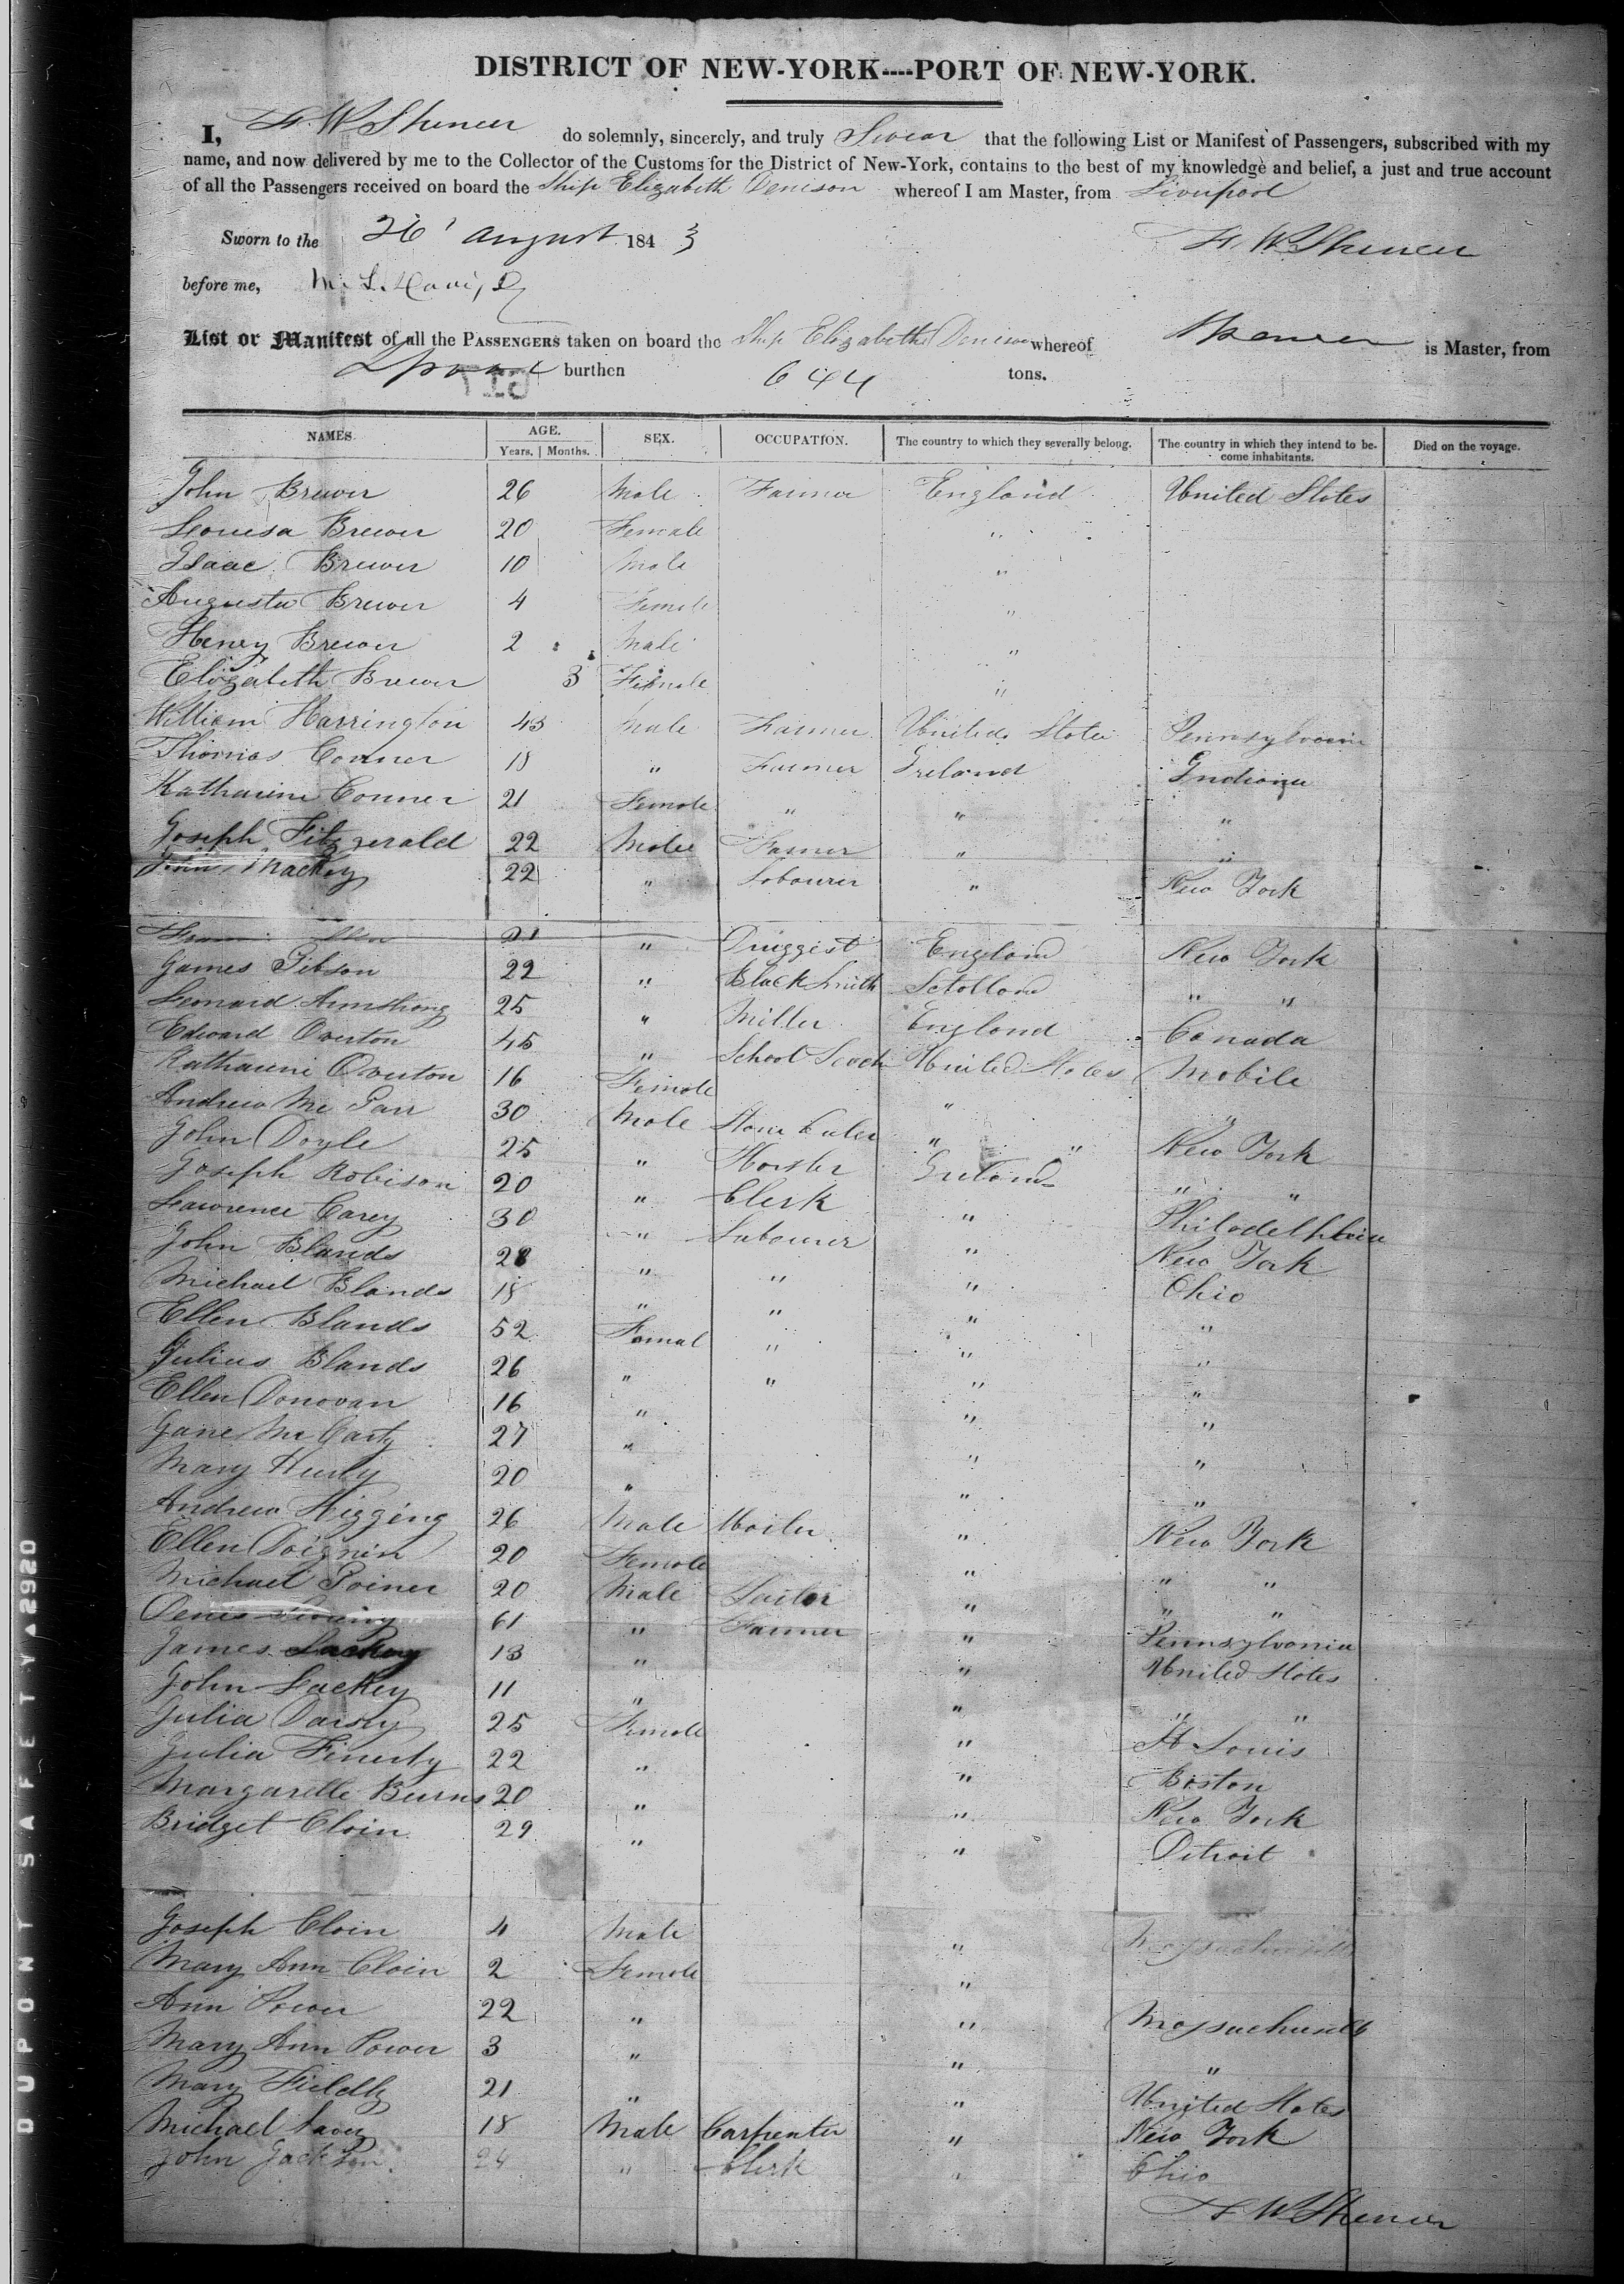 DISTRICT OF NEW-YORK----PORT OF NEW-YORK.
I, F. W. Spencer do solemnly, sincerely, and truly Swear that the following List or Manifest of Passengers, subscribed with my
name, and now delivered by me to the Collector of the Customs for the District of New-York, contains to the best of my knowledge and belief, a just and true account
of all the Passengers received on board the Ship Elizabeth Denison whereof I am Master, from Liverpool
Sworn to the 26 August 1843 F. W. Spencer
before me,
List or Manifest of all the PASSENGERS taken on board the Ship Elizabeth Denison whereof Spencer is Master, from
Lpool burthen 644 tons.
NAMES. AGE. SEX. OCCUPATION. The country to which they severally belong. The country in which they intend to be- Died on the voyage.
Years, | Months. come inhabitants.
John Brewer 26 Male Farmer England United States
Louisa Brewer 20 Female "
Isaac Brewer 10 Male "
Augusta Brewer 4 Female "
Henry Brewer 2 Male "
Elizabeth Brewer 3 Female "
William Harrington 45 Male Farmer United States Pennsylvania
Thomas Conner 18 " Farmer Ireland Indiana
Katharine Conner 21 Female " " "
Joseph Fitzgerald 22 Male Farmer " "
John Mackey 22 " Labourer " New York
21 " Druggist England New York
James Gibson 22 " Black Smith Scotland " "
Leonard Armstrong 25 " Miller England Canada
Edward Overton 45 " School Teach United States Mobile
Katharine Overton 16 Female " "
Andrew Mc 30 Male Stone Cutter " " New York
John Doyle 25 " Ireland " "
Joseph Robison 20 " Clerk " Philadelphia
Lawrence Carey 30 " Labourer " New York
John Blands 28 " " " Ohio
Michael Blands 18 " " " "
Ellen Blands 52 Femal " " "
Julius Blands 26 " " " "
Ellen Donovan 16 " " "
Jane Mc Carty 27 " " "
Mary Hurly 20 " " "
Andrew Higging 26 Male " New York
Ellen Doignin 20 Female " " "
Michael Poiner 20 Male Tailor " " "
Denis 61 " Farmer " Pennsylvania
James Lackey 13 " " United States
John Lackey 11 " " " "
Julia Darsy 25 Female " St Louis
Julia Finerty 22 " " Boston
Margarette Burns 20 " " New York
Bridget Cloin 29 " " Detroit
Joseph Cloin 4 Male " Massachusetts
Mary Ann Cloin 2 Female "
Ann Power 22 " " Massachusetts
Mary Ann Power 3 " " "
Mary 21 " " United States
Michael 18 Male Carpenter " New York
John Jackson 24 " Clerk " Ohio
F. W. Spencer
DUPONT SAFETY▲2920